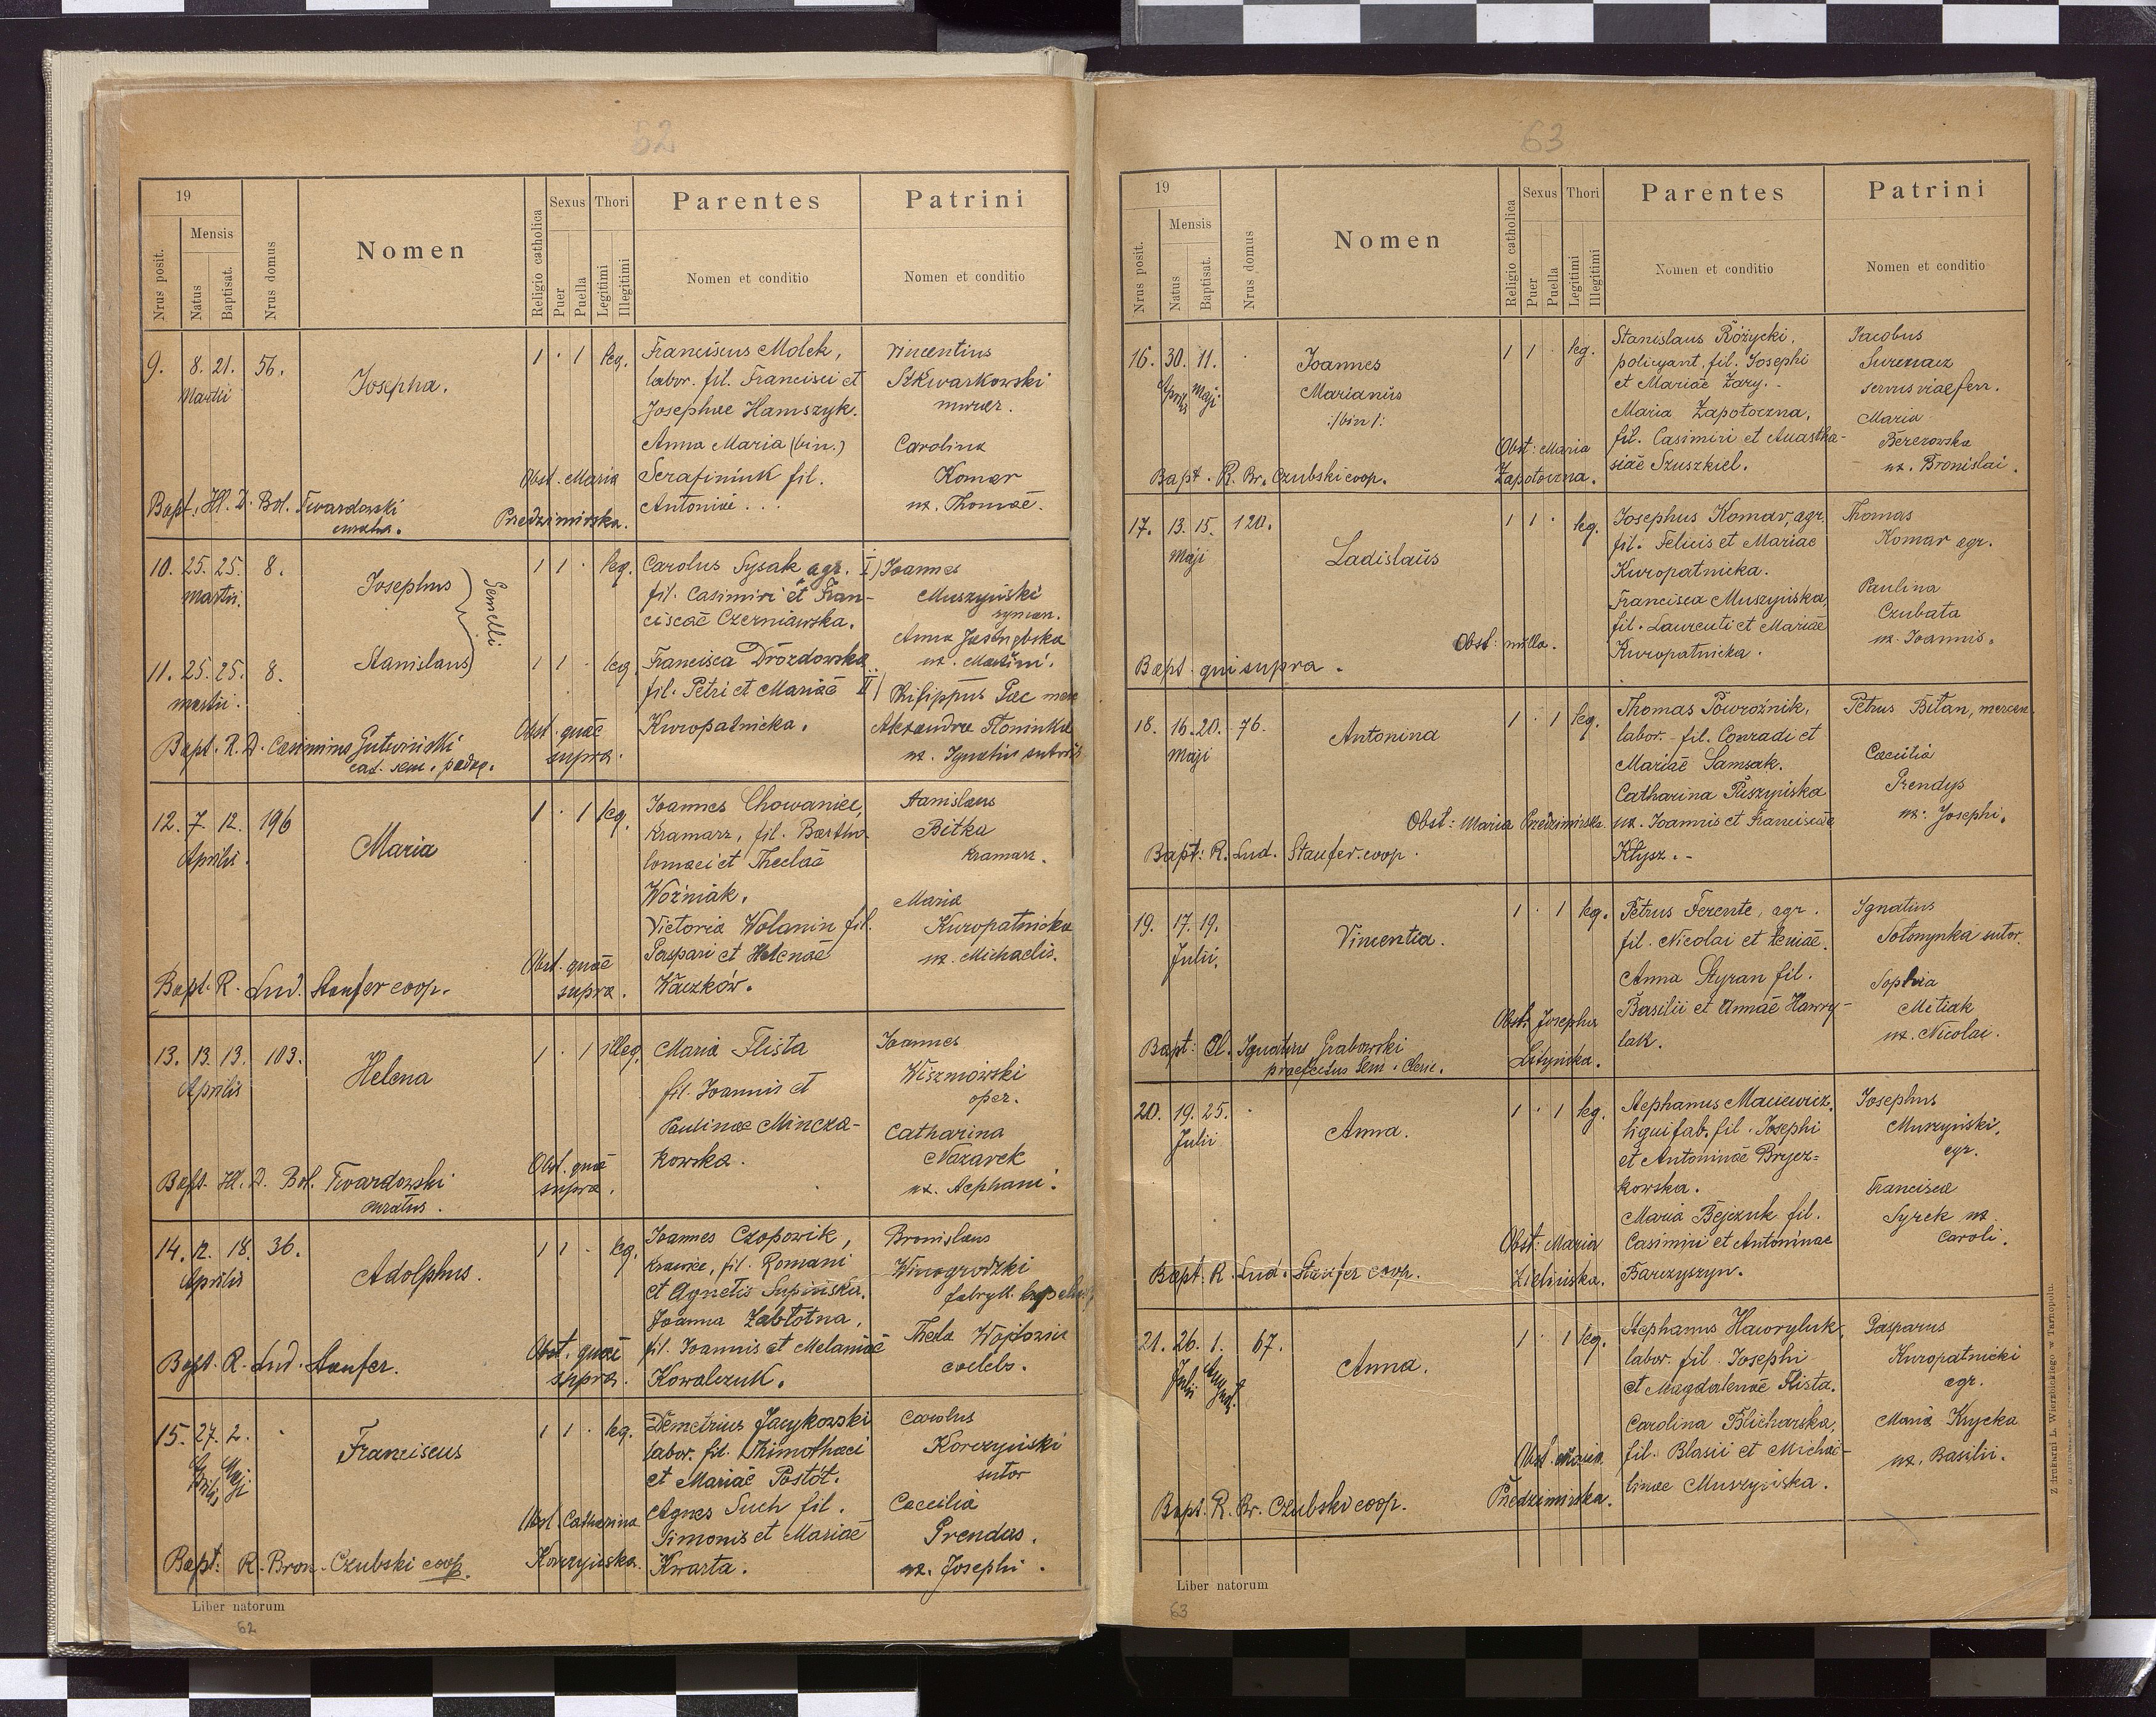 52
19
Nrus posit.
Mensis
Natus
Baptisat.
Nrus domus
Nomen
Religio catholica
Sexus
Puer
Puella
Thori
Legitimi
Illegitimi
Parentes
Nomen et conditio
Patrini
Nomen et conditio
9. 8. 21. 56.
Martii
Josepha.
1 · 1 leg.
Franciscus Molek,
labor. fil. Francisci et
Josephae Hamszyk.
Anna Maria (bin.)
Serafiniuk fil.
Antoniae . . .
Vincentius
Szkwarkowski
murar.
Carolina
Komar
ux. Thomae.
Obst. Maria
Przedzimirska.
Bapt. Hl. D. Bol. Twardowski
curatus.
10. 25. 25. 8.
martii.
Josephus
Gemelli
1 1 · leg.
Carolus Sysak agr.
fil. Casimiri et Fran-
ciscae Czerniawska.
I) Joannes
Muszyński
Anna Jastrzębska
ux. Martini.
11. 25. 25. 8.
martii.
Stanislaus
1 1 · leg.
Francisca Drozdowska
fil. Petri et Mariae
Kuropatnicka.
II) Philippus Pac merc
Alexandra Słonińka
ux. Ignatii sutoris
Obst. quae
supra.
Bapt. R. D. Casimirus Gutwiński
cat. sem. paedag.
12. 7. 12. 196
Aprilis.
Maria
1 · 1 leg.
Joannes Chowaniec,
kramarz, fil. Bartho
lomaei et Theclae
Woźniak.
Victoria Wolanin fil.
Gaspari et Helenae
Waczków.
Stanislaus
Bitka
kramarz.
Maria
Kuropatnicka
ux. Michaelis.
Obst. quae
supra.
Bapt. R. Lud. Staufer coop.
13. 13. 13. 103.
Aprilis
Helena
1 · 1 illeg.
Maria Flista
fil. Joannis et
Paulinae Mincza-
kowska.
Joannes
Wiszniowski
oper.
Catharina
Nazarek
ux. Stephani.
Obst. quae
supra.
Bapt. Hl. D. Bol. Twardowski
curatus.
14. 12. 18. 36.
Aprilis
Adolphus.
1 1 · leg.
Joannes Czopowik,
krawiec, fil. Romani
et Agnetis Supińska.
Joanna Zabłotna,
fil. Joannis et Melaniae
Kowalczuk.
Bronislaus
Winogrodzki
fabryk.
Thecla Wojtowicz
coelebs.
Obst. quae
supra.
Bapt. R. Lud. Staufer.
15. 27. 2. ·
Aprilis Maji
Franciscus
1 1 · leg.
Demetrius Jacykowski
labor. fil. Thimothaei
et Mariae Postót.
Agnes Such fil.
Simonis et Mariae
Kwarta.
Carolus
Korczyński
sutor
Caecilia
Prendas.
ux. Josephi.
Obst. Catharina
Korczyńska.
Bapt: R. Bron. Czubski coop.
Liber natorum
62
63
19
Nrus posit.
Mensis
Natus
Baptisat.
Nrus domus
Nomen
Religio catholica
Sexus
Puer
Puella
Thori
Legitimi
Illegitimi
Parentes
Nomen et conditio
Patrini
Nomen et conditio
16. 30. 11. ·
Aprilis Maji
Joannes
Marianus
:/bin/:
1 1 · leg.
Stanislaus Różycki,
policyant, fil. Josephi
et Mariae Zary.
Maria Zapotoczna,
fil. Casimiri et Anastha-
siae Szuszkiel.
Jacobus
servus viae ferr.
Maria
Berezowska
ux. Bronislai.
Obst: Maria
Zapotoczna.
Bapt. R. Br. Czubski coop.
17. 13. 15. 120.
Maji
Ladislaus
1 1 · leg.
Josephus Komar, agr.
fil. Felicis et Mariae
Kuropatnicka.
Francisca Muszyńska,
fil. Laurenti et Mariae
Kuropatnicka.
Thomas
Komar agr.
Paulina
Czubata
ux. Joannis.
Obst: nulla.
Bapt. qui supra.
18. 16. 20. 76.
Maji
Antonina
1 · 1 leg.
Thomas Powroźnik,
labor. - fil. Conradi et
Mariae Samsak.
Catharina Puszyńska
ux. Joannis et Franciscae
Kłysz. -
Petrus Bitan, mercen.
Caecilia
Prendys
ux: Josephi.
Obst: Maria Przedzimirska.
Bapt: R. Lud. Staufer. coop.
19. 17. 19.
Julii.
Vincentia.
1 · 1 leg.
Petrus Ferente, agr.
fil. Nicolai et Xeniae.
Anna Styran fil.
Basilii et Annae Hawry-
lak.
Ignatius
Sotonynka sutor.
Sophia
Mitiak
ux. Nicolai.
Obst: Josepha
Letyńska.
Bapt: Cl. Ignatius Grabowski
praefectus Sem. Cleric.
20. 19. 25. ·
Julii
Anna.
1 · 1 leg.
Stephanus Maciewicz.
lignifab. fil. Josephi
et Antoninae Brycz=
kowska.
Maria Bejczuk fil.
Casimiri et Antoninae
Barczyszyn.
Josephus
Murzyński.
agr.
Francisca
Syrek ux
Caroli.
Obst: Maria
Zielińska.
Bapt: R. Lud. Staufer coop.
21. 26. 1. 67.
Julii Augusti
Anna.
1 · 1 leg.
Stephanus Hawryluk,
labor. fil. Josephi
et Magdalenae Flista.
Carolina Blicharska,
fil. Blasii et Michae-
linae Muszyńska.
Gasparus
Kuropatnicki
agr.
Maria Krycka
ux. Basilii.
Obst. Maria
Przedzimirska.
Bapt: R. Br. Czubski coop.
Liber natorum
63
Z drukarni L. Wierzbickiego w Tarnopolu.